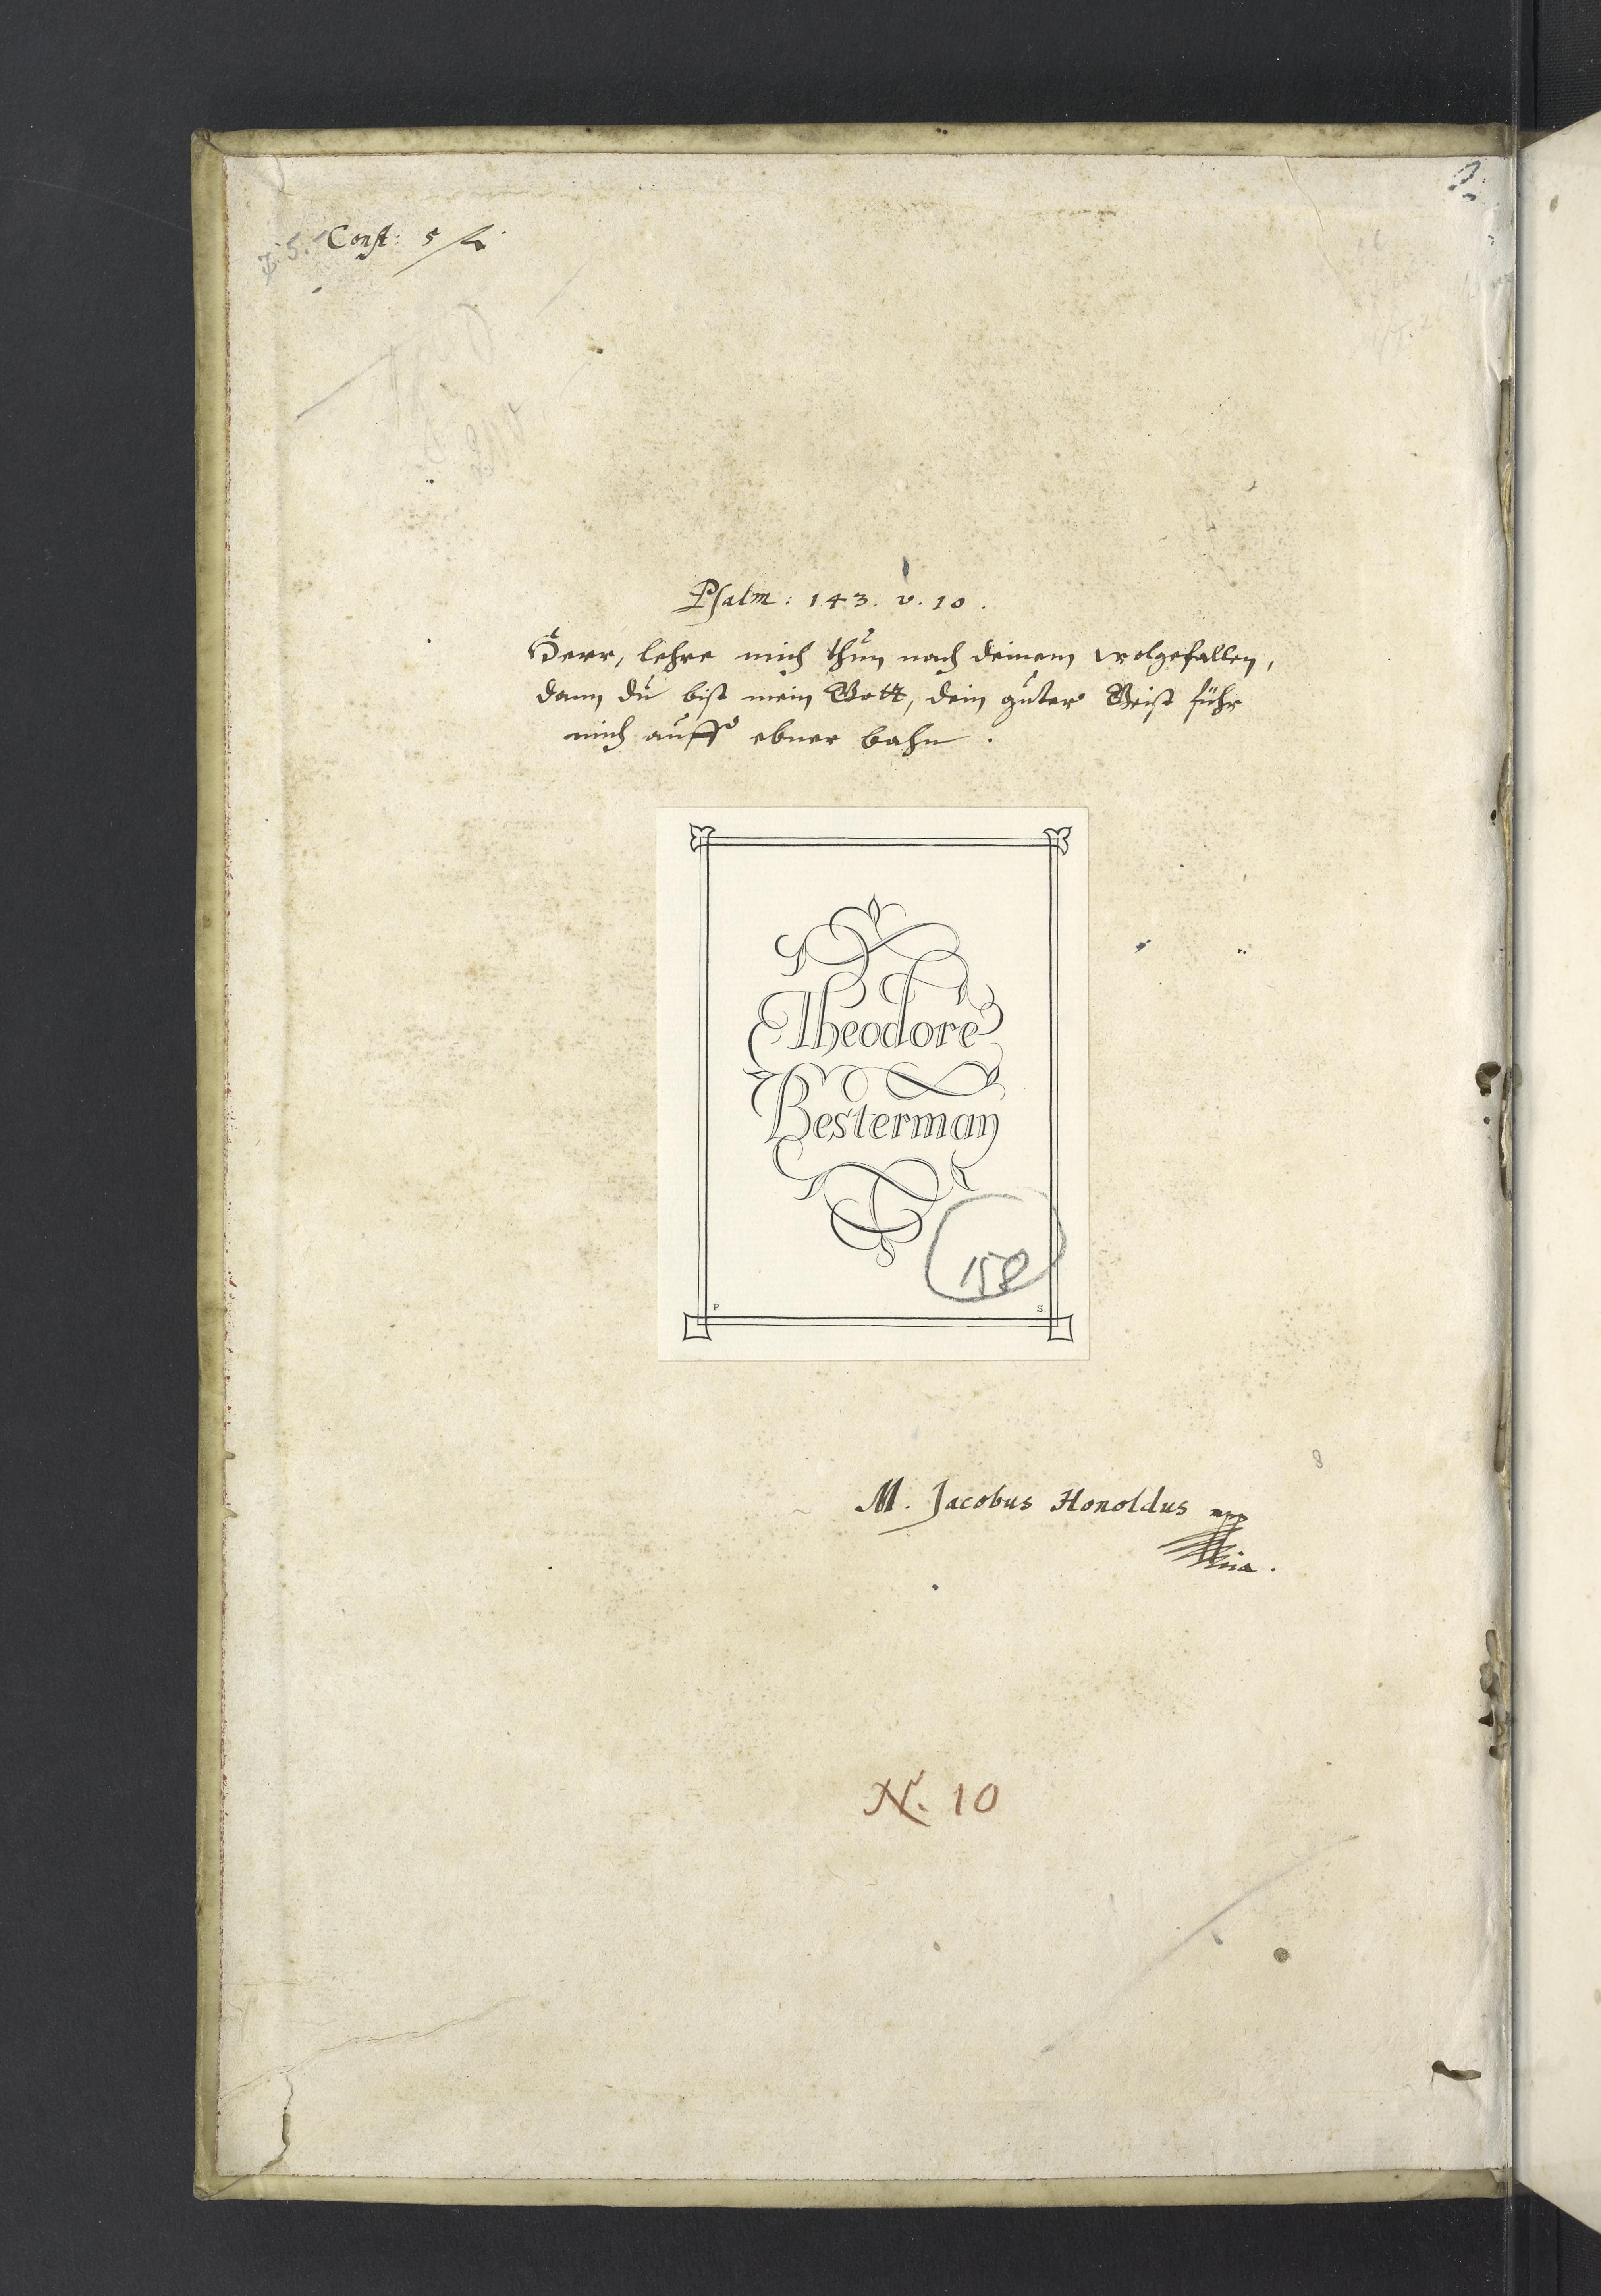 Const: 5
Psalm: 143. v. 10.
Herr, lehre mich thun nach deinem wolgefallen,
dann du bist mein Gott, dein guter Geist führ
mich auff ebner bahn.
Theodore
Besterman
158
P S
8
M. Jacobus Honoldus mpp
ria.
N. 10